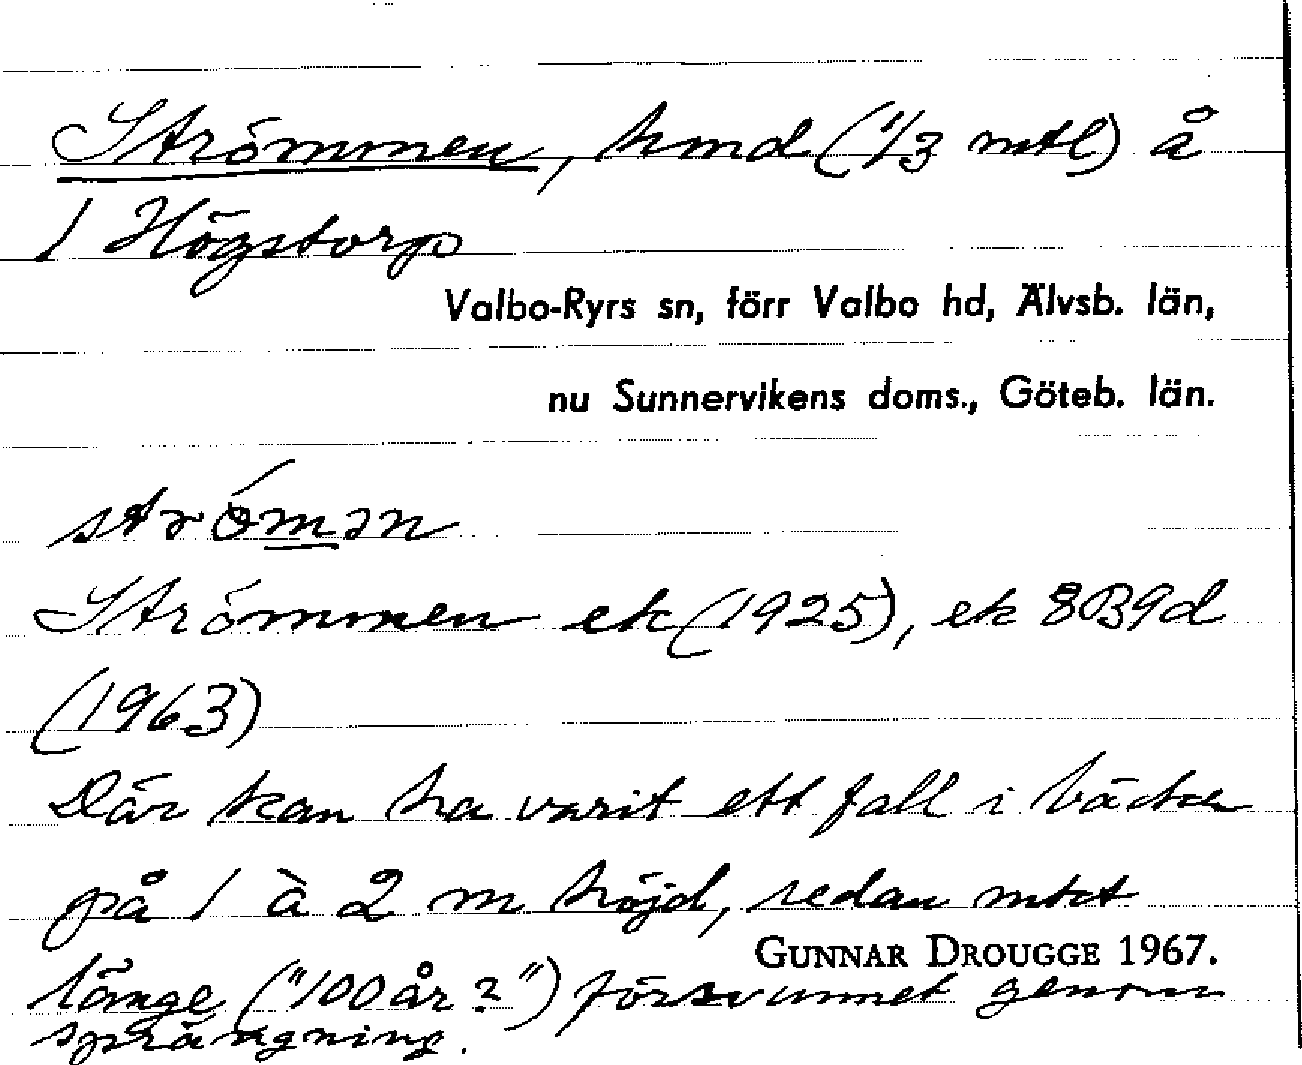 Strömmen, hmd (1/3 mtl) å
1 Högstorp
Valbo-Ryrs sn, förr Valbo hd, Älvsb. län,
nu Sunnervikens doms., Göteb. län.
strǿmən
Strömmen ek (1925), ek 8B9d
(1963)
Där kan ha varit ett fall i bäcken
på 1 à 2 m höjd, redan mkt
GUNNAR DROUGGE 1967.
länge ("100 år?") försvunnet genom
sprängning.